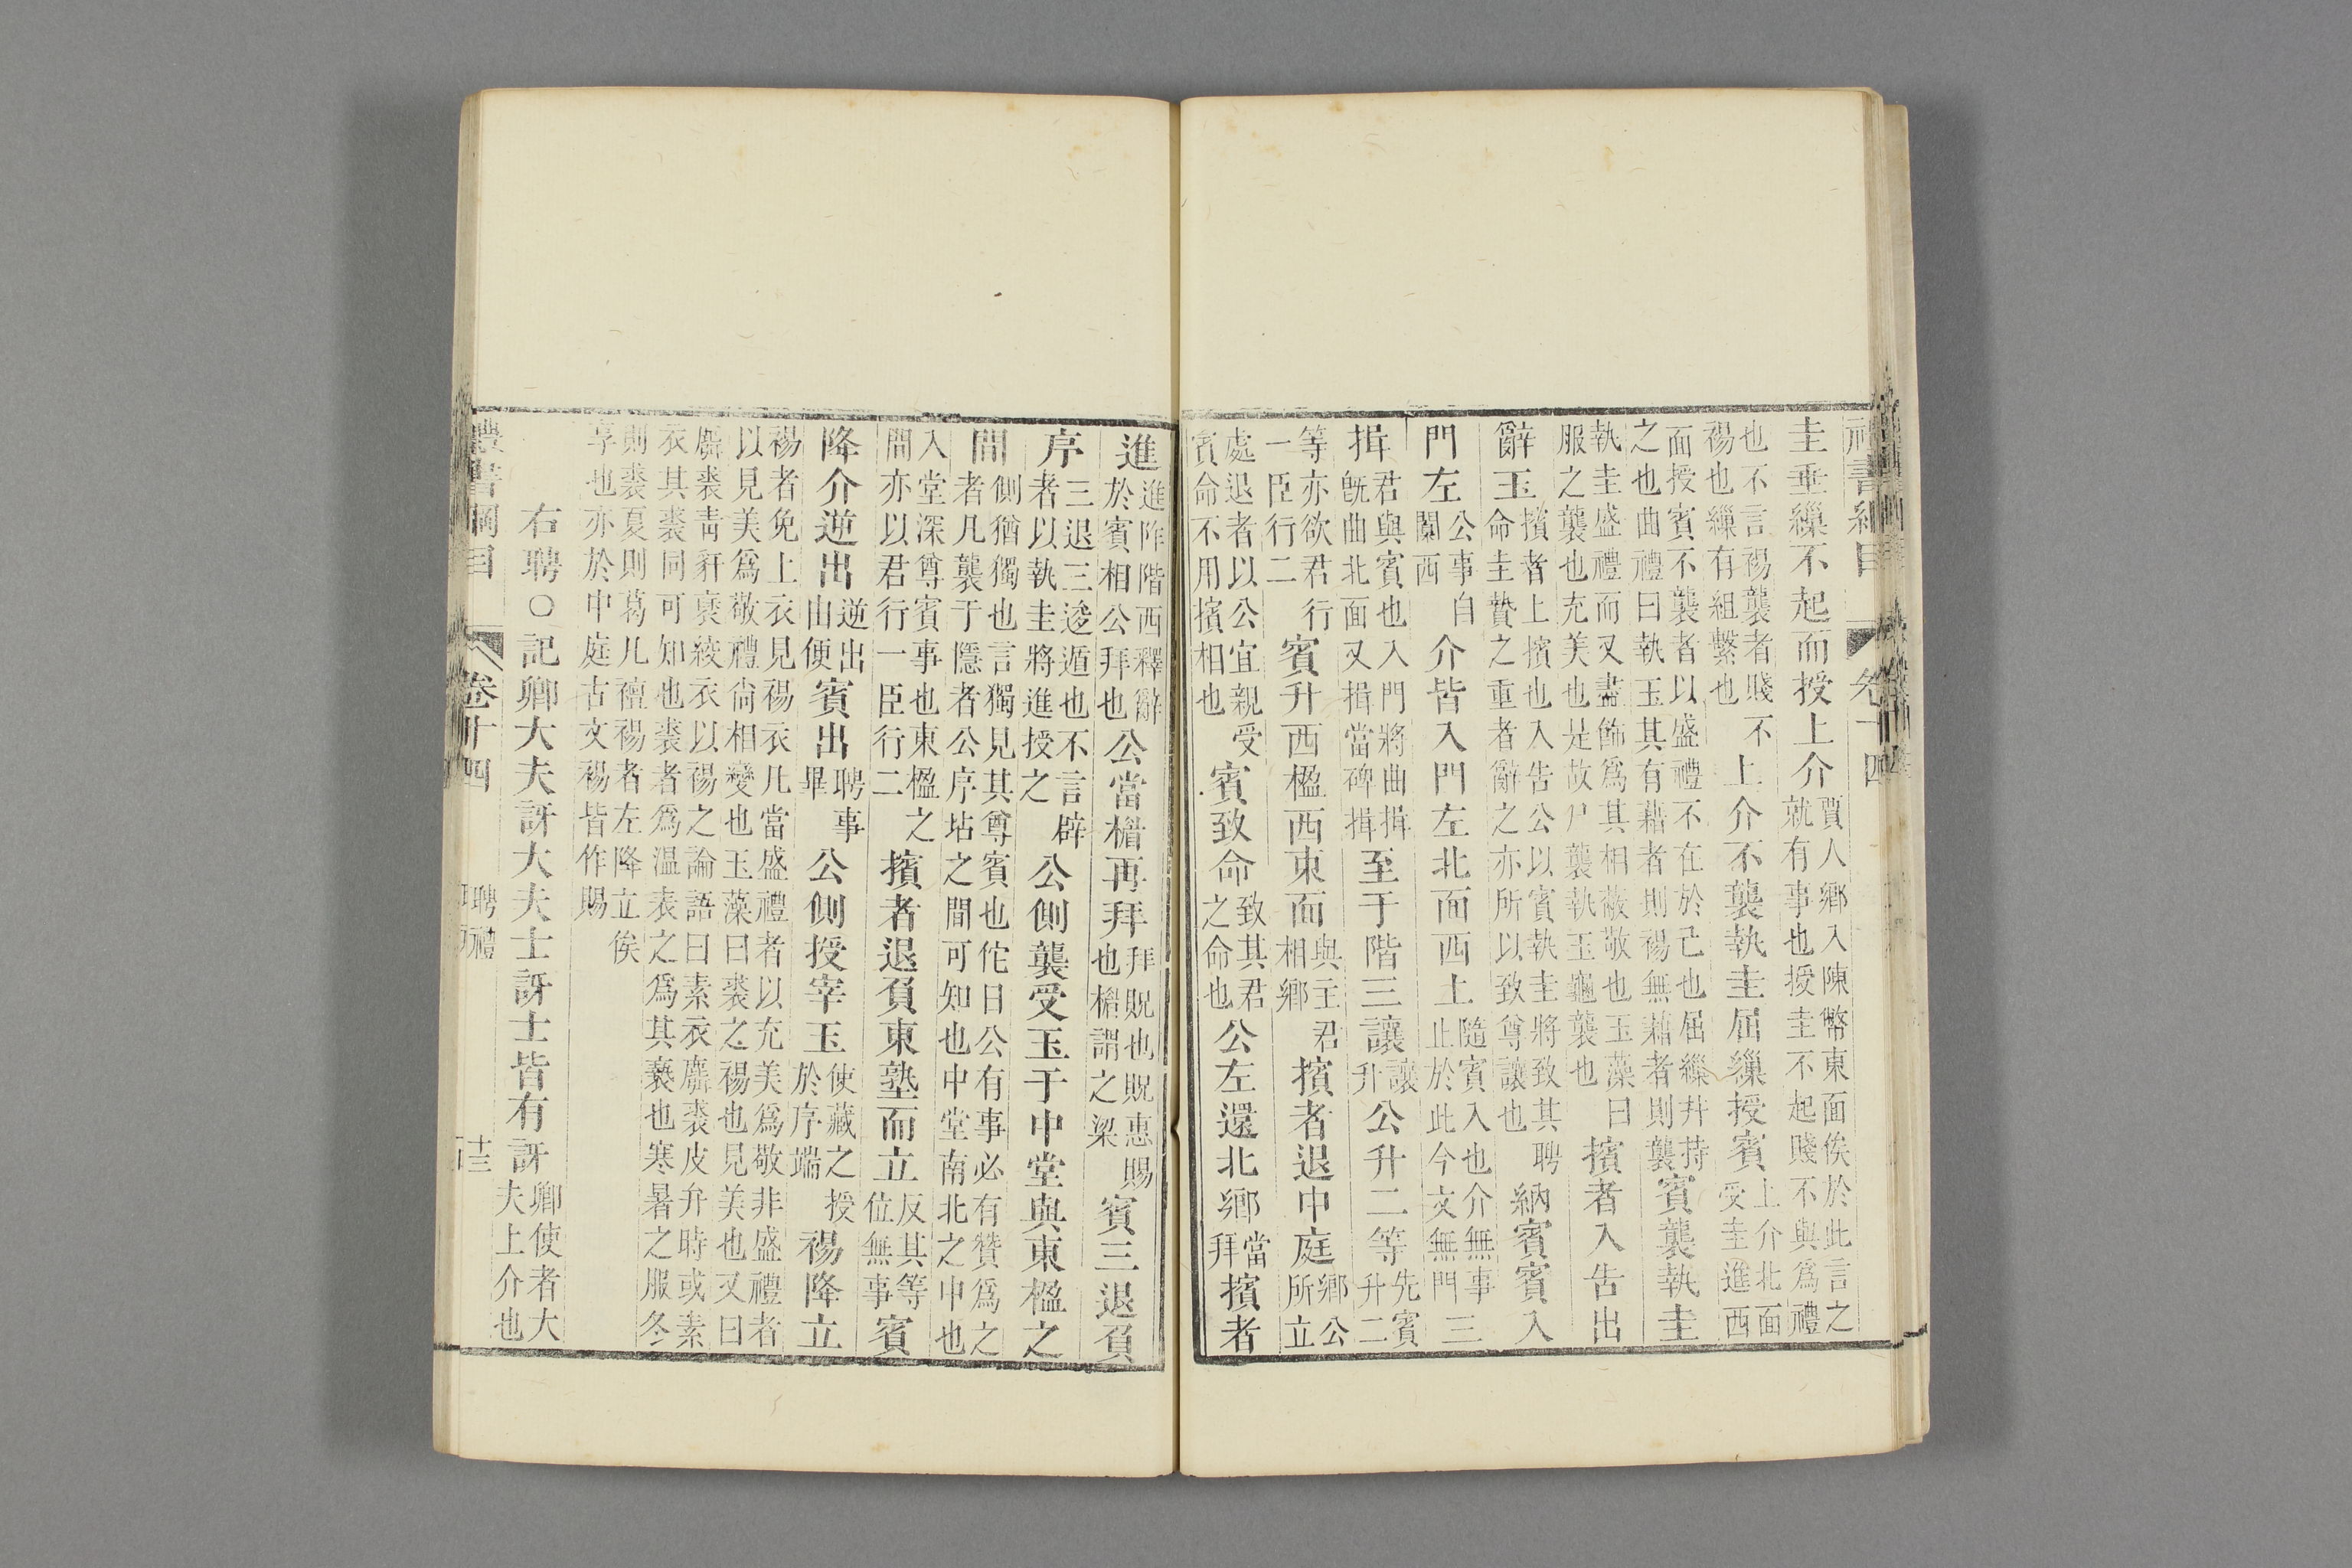 禮書綱目　卷十四
圭垂繅不起而授上介賈人鄉入陳幣東面俟於此言之就有事也授圭不起賤不與爲禮
也不言裼襲者賤不裼也繅有組繫也上介不襲執圭屈繅授賓上介北面受圭進西
面授賓不襲者以盛禮不在於己也屈繅幷持之也曲禮曰執玉其有藉者則裼無藉者則襲賓襲執圭
執圭盛禮而又盡飾爲其相蔽敬也玉藻曰服之襲也充美也是故尸襲執玉龜襲也擯者入告出
辭玉擯者上擯也入告公以賓執圭將致其聘命圭贄之重者辭之亦所以致尊讓也納賓賓入
門左公事自闑西介皆入門左北面西上隨賓入也介無事止於此今文無門三
揖君與賓也入門將曲揖旣曲北面又揖當碑揖至于階三讓讓升公升二等先賓升二
等亦欲君行一臣行二賓升西楹西東面與主君相鄉擯者退中庭鄉公所立
處退者以公宜親受賓命不用擯相也賓致命致其君之命也公左還北鄉當拜擯者
進進阼階西釋辭於賓相公拜也公當楣再拜拜貺也貺惠賜也楣謂之梁賓三退負
序三退三逡遁也不言辟者以執圭將進授之公側襲受玉于中堂與東楹之
間側猶獨也言獨見其尊賓也佗日公有事必有贊爲之者凡襲于隱者公序坫之間可知也中堂南北之中也
入堂深尊賓事也東楹之間亦以君行一臣行二擯者退負東塾而立反其等位無事賓
降介逆出逆出由便賓出聘事畢公側授宰玉使藏之授於序端裼降立
裼者免上衣見裼衣凡當盛禮者以充美爲敬非盛禮者以見美爲敬禮尙相變也玉藻曰裘之裼也見美也又曰
麛裘靑豻褎絞衣以裼之論語曰素衣麛裘皮弁時或素衣其裘同可知也裘者爲温表之爲其褻也寒暑之服冬
則裘夏則葛凡襢裼者左降立俟享也亦於中庭古文裼皆作賜
右聘○記卿大夫訝大夫士訝士皆有訝卿使者大夫上介也
禮書綱目　卷十四　聘禮　十三